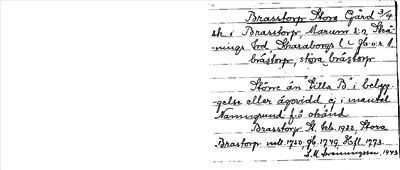 Brasstorp Stora Gård 3/4
sk i Brasstorp, Marum sn, Skå-
nings hd, Skaraborgs l – gb n:r 1.
bråstorp, stora bråstorp
Större än "Lilla B" i bebyg-
gelse eller ägovidd, ej i mantal
Namngrund f.ö. okänd
Brasstorp St. kb. 1922, Stora
Brastorp 1750, jb. 1749, Hfl. 1773.
1943